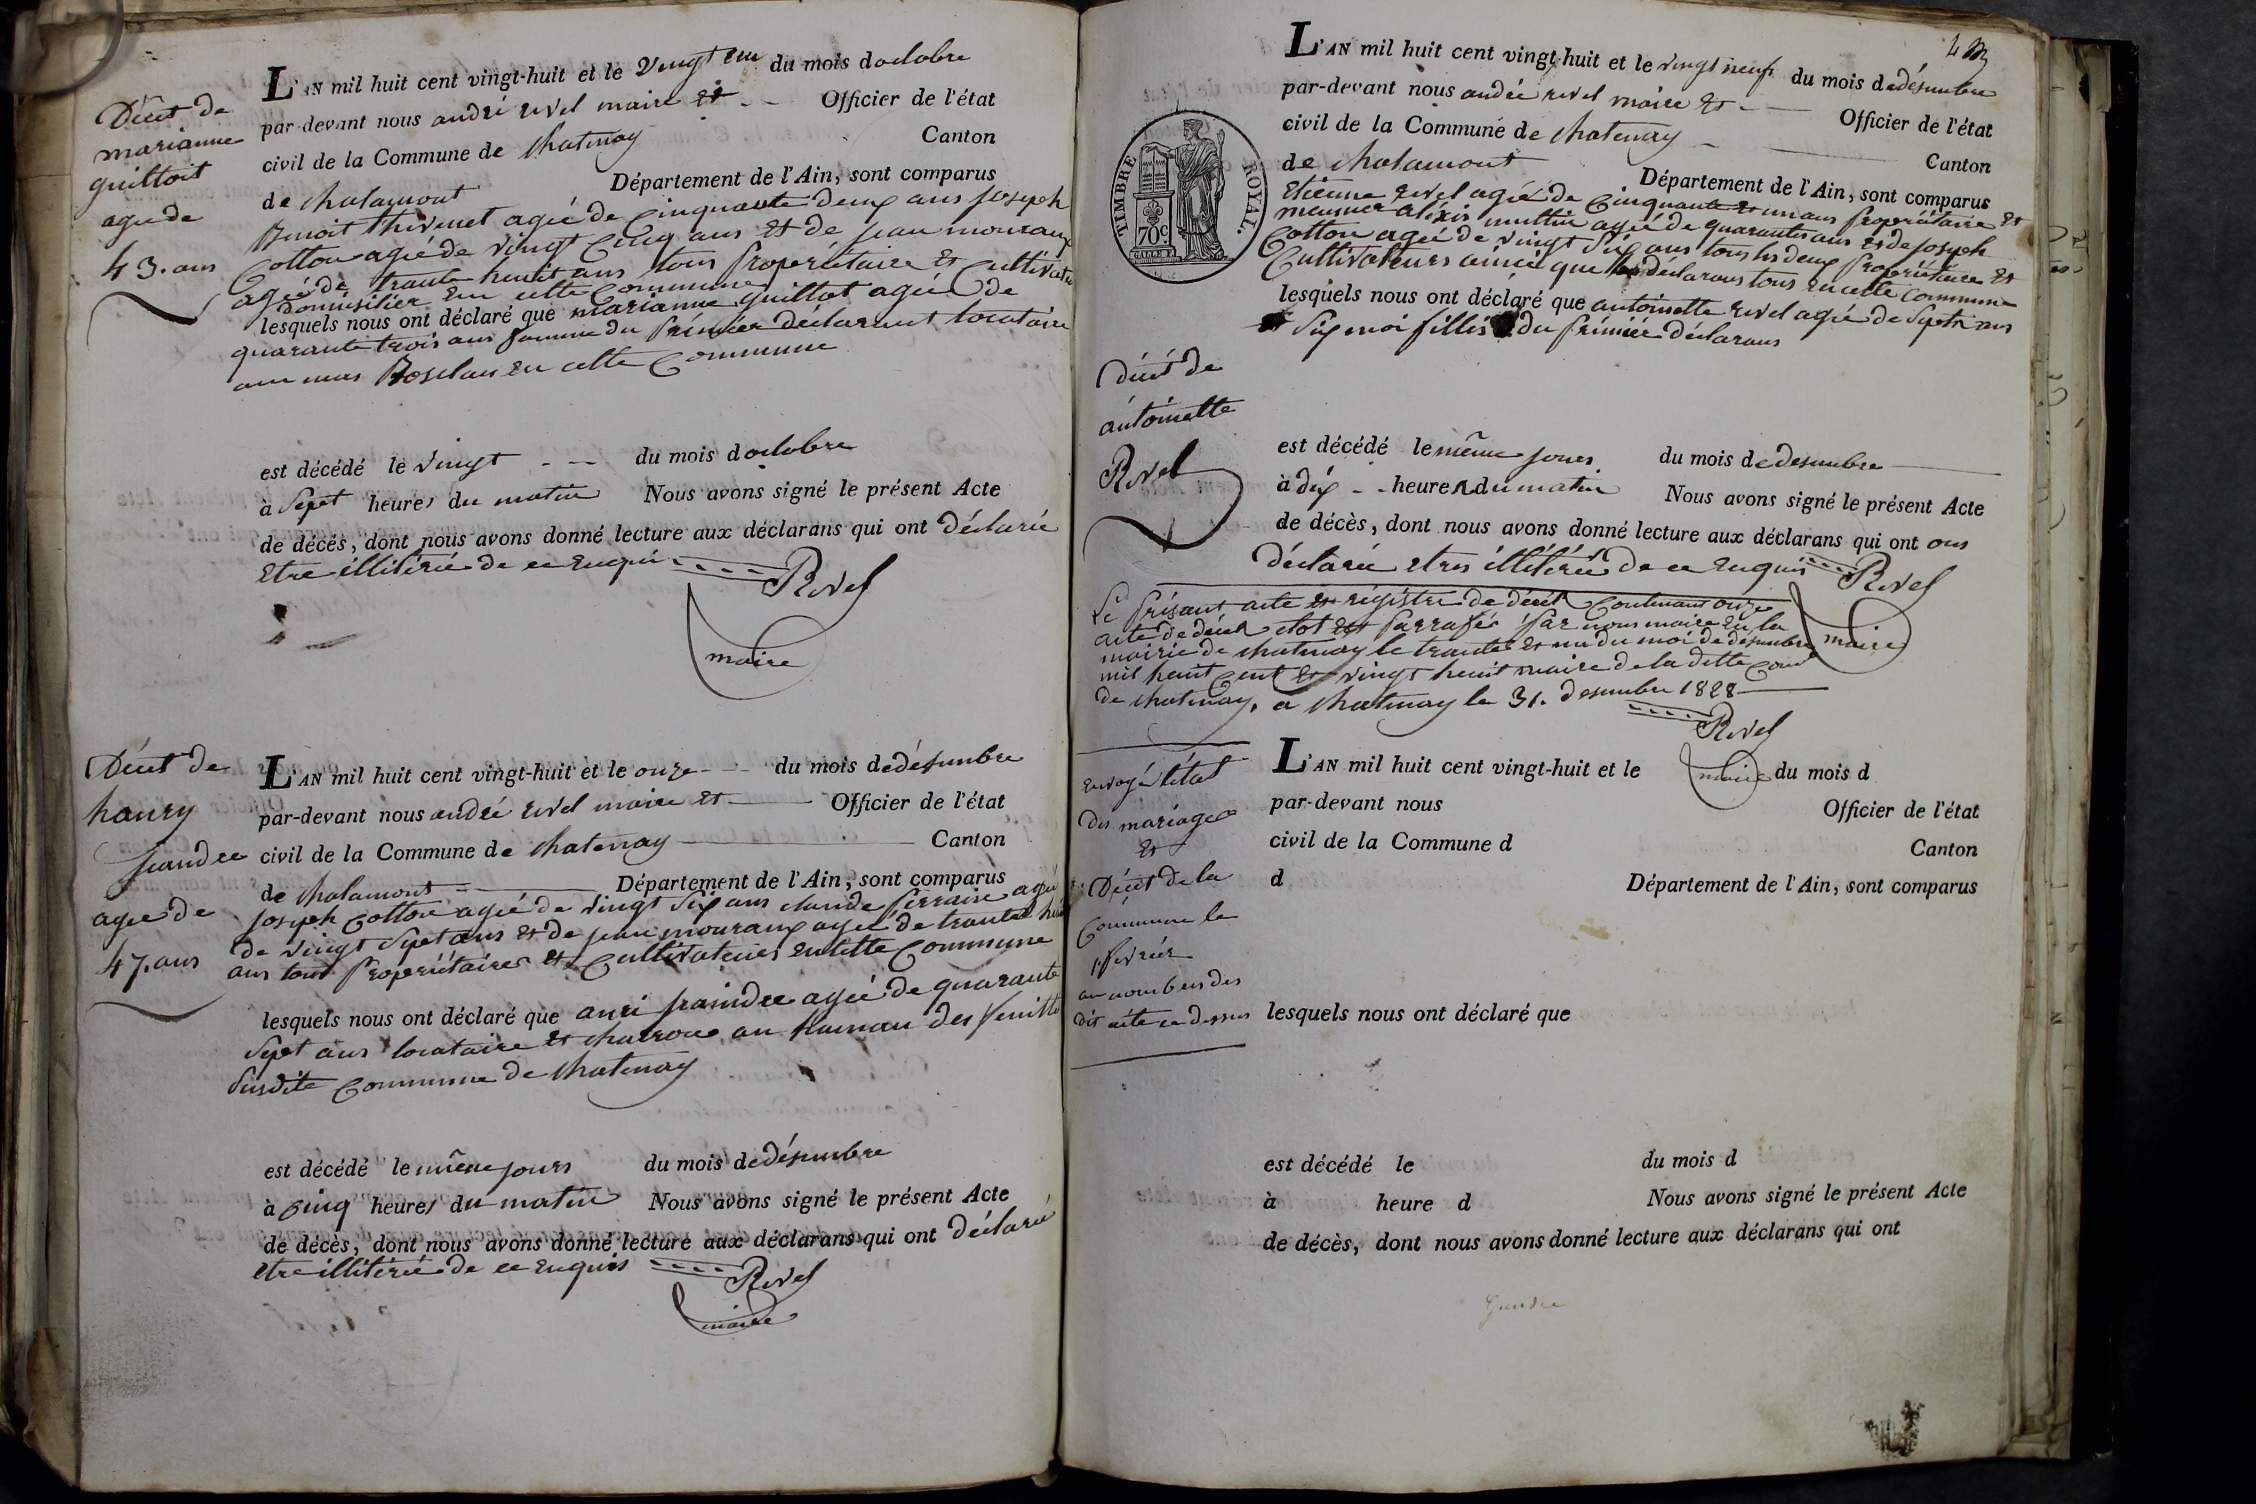 Décet de
marianne
guilloit
agee de
43. ans
L'AN mil huit cent vingt-huit et le vingt em du mois doctobre
par-devant nous andré revel maire et Officier de l'état
civil de la Commune de Chatenay Canton
de Chalamont Département de l'Ain, sont comparus
Benoit thivenet ageé de Cinquante deux ans joseph
Cotton ageé de vingt Cinq ans et de jean mouraux
ageé de trante heuit ans tous propériétaire et Cultivate
domisilier en cette Commune
lesquels nous ont déclaré que Marianne guillot ageé de
quarante trois ans famme du prémier déclarant locataire
au mas Rosclan en cette Commune
est décédé le vingt du mois doctobre
à Sept heures du matin Nous avons signé le présent Acte
de décés, dont nous avons donné lecture aux déclarans qui ont déclarée
etre illitérée de ce Enquis Revel
maire
Décet de
hanry
jeandee
agee de
47. ans
L'AN mil huit cent vingt-huit et le onze du mois dedésembre
par-devant nous andré revel maire et Officier de l'état
civil de la Commune de Chatenay Canton
de Chalamont Département de l'Ain, sont comparus
joseph Cotton ageé de vingt Six ans claude perraire ageé
de vingt Sept ans et de jean mouraux ageé de trante heui
ans tous propériétaires et Cultivateurs en cette Commune
lesquels nous ont déclaré que anri jeaindee ageé de quarante
Sept ans locataire et charron au hameau des
Susdite Commune de Chatenay
est décédé le même jours du mois dedésembre
à Cinq heures du matin Nous avons signé le présent Acte
de décés, dont nous avons donné lecture aux déclarans qui ont déclaré
etre illitérée de ce Enquis Revel
maire
TIMBRE ROYAL.
70c
L'AN mil huit cent vingt-huit et le vingt neuf du mois dedésembre
par-devant nous andré revel maire et Officier de l'état
civil de la Commune de Chatenay Canton
de Chalamont Département de l'Ain, sont comparus
Etienne revel ageé de Cinquante et un ans propériétaire et
meunier aléxis muttin ageé de quarante ans et de joseph
Cotton ageé de vingt Six ans tous les deux propriétaire et
Cultivateurs ainci que les déclarans tous en cette Commune
lesquels nous ont déclaré que antoinette revel ageé de Sept ans
Six moi filles du prémier déclarans
Décet de
antoinette
Revel
est décédé le même jours du mois dedesembre
à dix heures du matin Nous avons signé le présent Acte
de décès, dont nous avons donné lecture aux déclarans qui ont ons
déclarée etres illitérée de ce Enquis Revel
maire
Le présant acte et régistre de décét Contenant onze
acte de décet clot et parrafée par nous maire en la
mairie de chatenay le trante et un du moi de désembre
mil heuit Cent et vingt heuit maire de la ditte Com
de chatenay. a Chatenay le 31. desembre 1828
Revel
maire
envoyé létat
des mariages
et
Décet de la
Commune le
1 février
au nombres des
dit acte ce dessus
L'AN mil huit cent vingt-huit et le du mois d
par-devant nous Officier de l'état
civil de la Commune d Canton
d Département de l'Ain, sont comparus
lesquels nous ont déclaré que
est décédé le du mois d
à heure d Nous avons signé le présent Acte
de décès, dont nous avons donné lecture aux déclarans qui ont